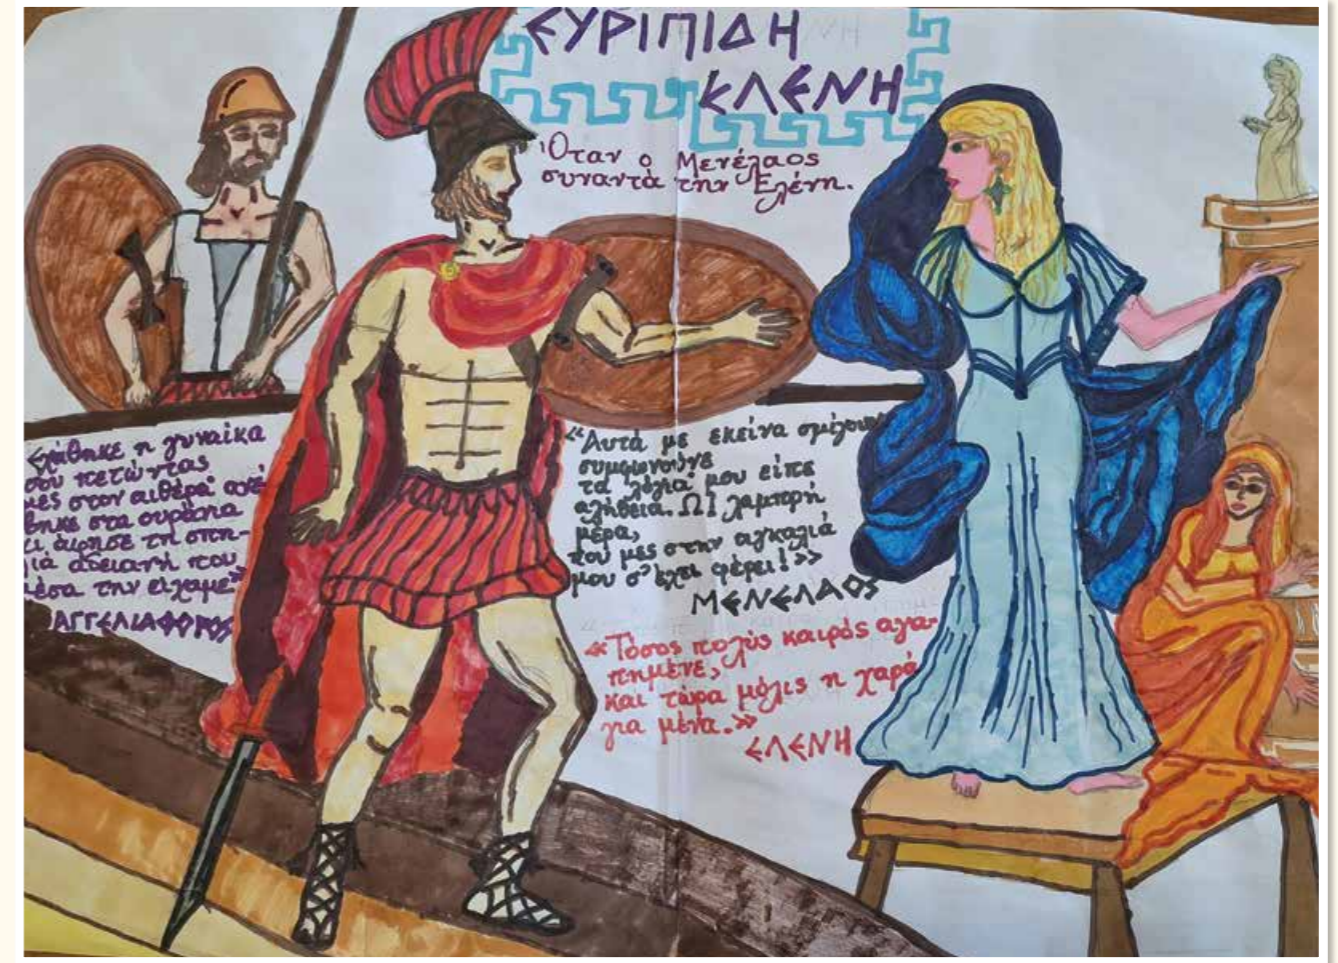 ΕΥΡΙΠΙΔΗ
ΕΛΕΝΗ
Όταν ο Μενέλαος
συναντά την Ελένη.
η γυναίκα
σου πετώντας
μες στον αιθέρα· ανέ
βηκε στα ουράνια
κι άφησε τη σπη-
λιά αδειανή που
μέσα την είχαμε»
ΑΓΓΕΛΙΑΦΟΡΟΣ
«Αυτά με εκείνα σμίγουν
συμφωνούνε
τα λόγια μου είπε
αλήθεια. Ω! λαμπρή
μέρα,
που μες στην αγκαλιά
μου σ' έχει φέρει!»
ΜΕΝΕΛΑΟΣ
«Τόσος πολύς καιρός αγα-
πημένε,
και τώρα μόλις η χαρά
για μένα.»
ΕΛΕΝΗ